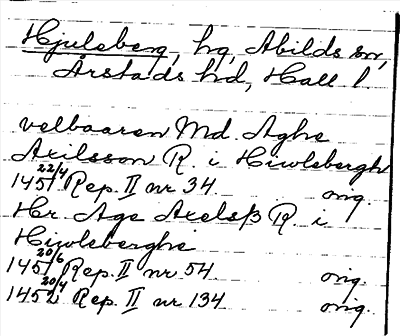 Hjuleberg, hg, Abilds sn,
Årstads hd, Hall l.
velbaaren Md. Aghe
Axilsson R. i Hiwlebergh
1451 22/4 Rep. II nr 34. orig.
Hr. Age Axelsß R. i
Hiwleberghe
1451 20/6 Rep. II nr 54 orig.
1452 20/4 Rep. II nr 134 orig.